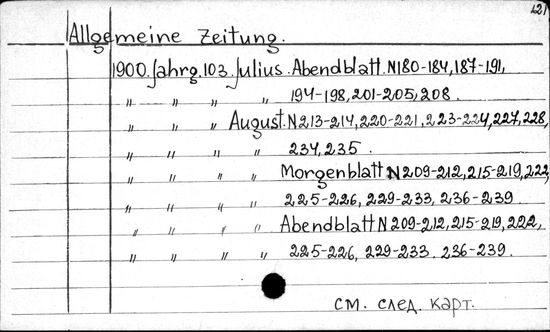 121
Allgemeine Zeitung.
1900. Jahrg. 103. Julius. Abendblatt. N180-184, 187-191,
" " " " 194-198, 201-205, 208.
" " " August. N213-214, 220-221, 223-224, 227, 228,
" " " " 234, 235.
" " " " Morgenblatt N209-212, 215-219, 222,
" " " " 225-226, 229-233, 236-239.
" " " " Abendblatt N209-212, 215-219, 222,
" " " " 225-226, 229-233, 236-239.
см. след. карт.